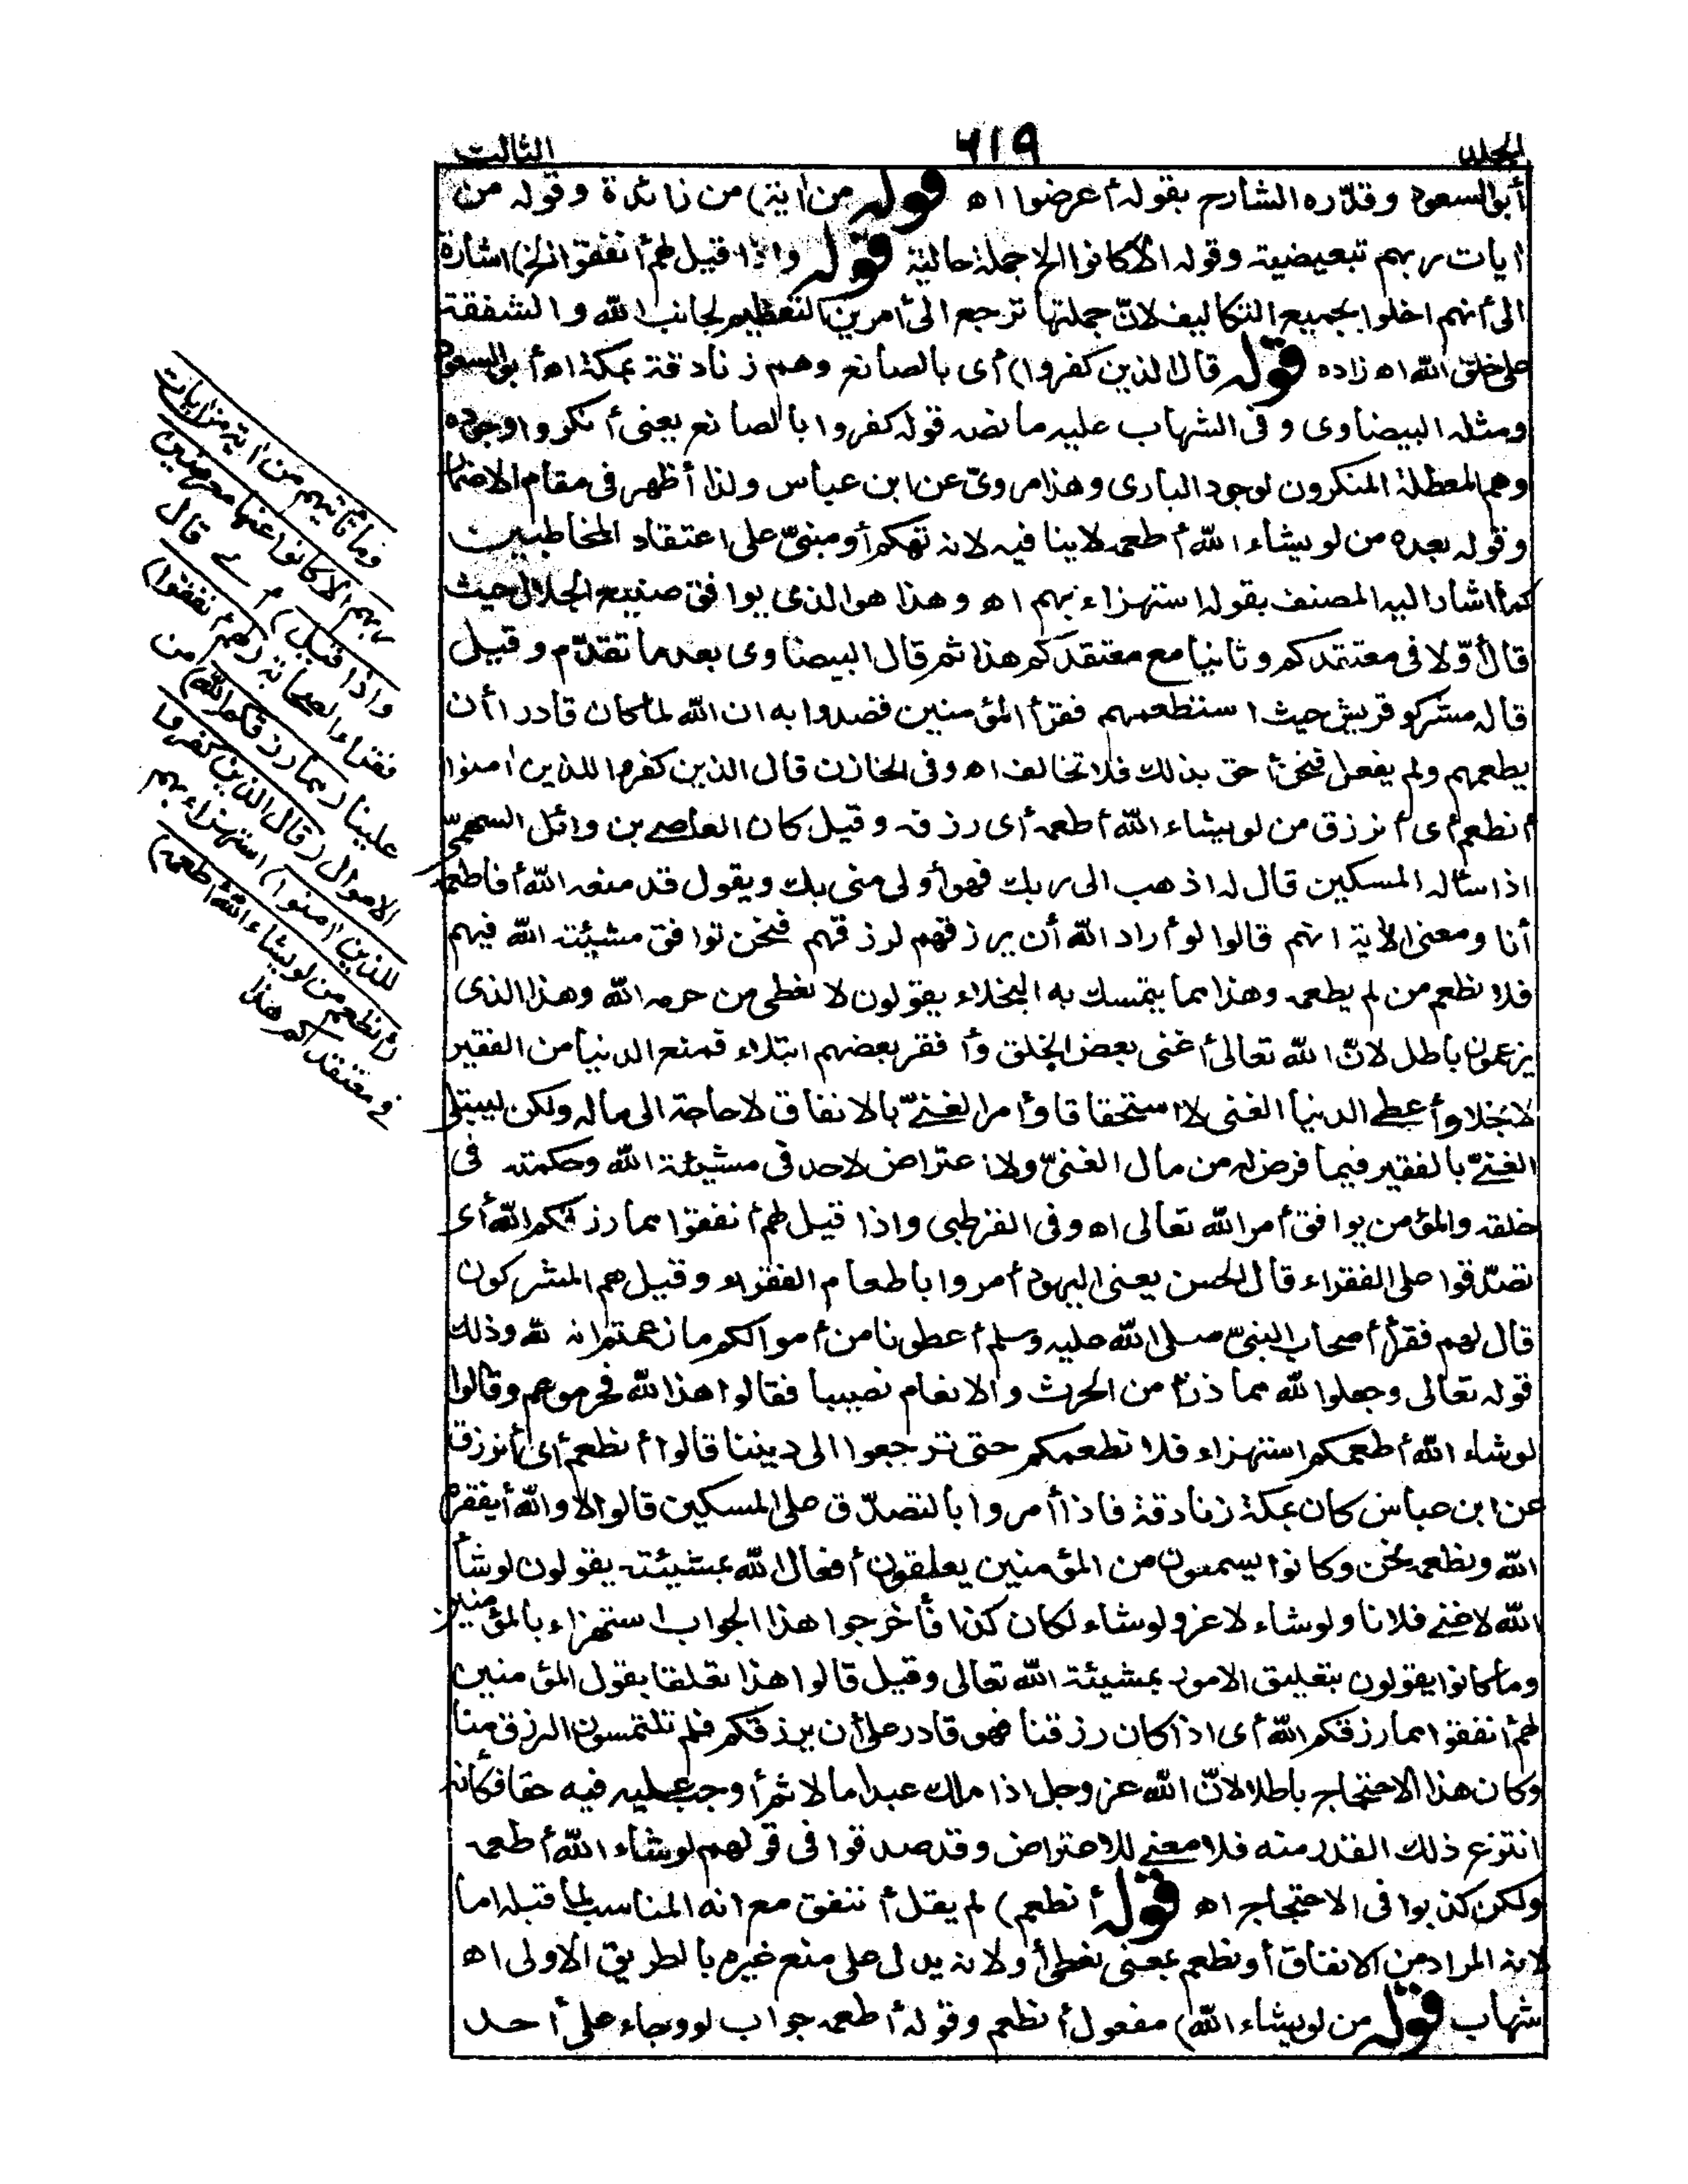 المجلد ٦١٩ الثالث
أبو السعود وقدّره الشارح بقوله أعرضوا اه قوله من اية) من زائدة وقوله من
ايات ربهم تبعيضية وقوله الا كانوا الخ جملة حالية قوله واذا قيل لهم أنفقوا الخ) اشارة
الى أنهم اخلوا بجميع التكاليف لانّ جملتها ترجع الى أمرين التعظيم لجانب الله والشفقة
على خلق الله اه زاده قوله قال الذين كفروا) أى بالصانع وهم زنادقة بمكة اه أبو السعود
ومثله البيضاوى وفى الشهاب عليه ما نصه قوله كفروا بالصانع يعنى أنكروا وجوده
وهم المعطلة المنكرون لوجود البارى وهذا مروىّ عن ابن عباس ولذا أظهر فى مقام الاضمار
وقوله بعده من لو يشاء الله أطعمه لا ينافيه لانه تهكم أو مبنىّ على اعتقاد المخاطبين
كما أشار اليه المصنف بقوله استهزاء بهم اه وهذا هو الذى يوافق صنيع الجلال حيث
قال أوّلا فى معتقدكم وثانيا مع معتقدكم هذا ثم قال البيضاوى بعد ما تقدّم وقيل
قاله مشركو قريش حيث استطعمهم فقرأ المؤمنين قصدوا به ان الله لما كان قادرا أن
يطعمهم ولم يفعل فنحن أحق بذلك فلا تخالف اه وفى الخازن قال الذين كفروا للذين امنوا
أنطعم أى أنرزق من لو يشاء الله أطعمه أى رزقه وقيل كان العاصے بن وائل السهمىّ
اذا سأله المسكين قال له اذهب الى ربك فهو أولى منى بك ويقول قد منعه الله أفأطعمه
أنا ومعنى الأية انهم قالوا لو أراد الله أن يرزقهم لرزقهم فنحن نوافق مشيئته الله فيهم
فلا نطعم من لم يطعمه وهذا مما يتمسك به البخلاء يقولون لا نعطى من حرمه الله وهذا الذى
يزعمون باطل لانّ الله تعالى أغنى بعض الخلق وأفقر بعضهم ابتلاء فمنع الدنيا من الفقير
لا بخلا وأعطے الدنيا الغنى لا استحقاقا وأمر الغنےّ بالانفاق لا حاجة الى ماله ولكن ليبتلى
الغنےّ بالفقير فيما فرض له من مال الغنىّ ولا اعتراض لاحد فى مشيئة الله وحكمته فى
خلقه والمؤمن يوافق أمر الله تعالى اه وفى القرطبى واذا قيل لهم أنفقوا مما رزقكم الله أى
تصدّقوا على الفقراء قال الحسن يعنى اليهود أمروا باطعام الفقراء وقيل هم المشركون
قال لهم فقرأ أصحاب النبىّ صلى الله عليه وسلم أعطونا من أموالكم ما زعمتم انه لله وذلك
قوله تعالى وجعلوا لله مما ذرأ من الحرث والانعام نصيبا فقالوا هذا لله فحرموهم وقالوا
لو شاء الله أطعمكم استهزاء فلا نطعمكم حتى ترجعوا الى ديننا قالوا أنطعم أى أنرزق
عن ابن عباس كان بمكة زنادقة فاذا أمروا بالتصدّق على المسكين قالوا لا والله أيفقره
الله ونطعمه نحن وكانوا يسمعون من المؤمنين يعلقون أفعال الله بمشيئته يقولون لو شأ
الله لاغنے فلانا ولو شاء لاعز ولو شاء لكان كذا فأخرجوا هذا الجواب استهزاء بالمؤمنين
وما كانوا يقولون بتعليق الامور بمشيئة الله تعالى وقيل قالوا هذا تعلقا بقول المؤمنين
لهم أنفقوا مما رزقكم الله أى اذا كان رزقنا فهو قادر على أن يرزقكم فلم تلتمسون الرزق منا
وكان هذا الاحتجاج باطلا لانّ الله عز وجل اذا ملك عبدا مالا ثم أوجب عليه فيه حقا فكأنه
انتزع ذلك القدر منه فلا معنے للاعتراض وقد صدقوا فى قولهم لو شاء الله أطعمه
ولكن كذبوا فى الاحتجاج اه قوله أنطعم) لم يقل أننفق مع انه المناسب لما قبله اما
لانه المراد من الانفاق أو نطعم بمعنى نعطى أو لانه يدل على منع غيره بالطريق الاولى اه
شهاب قوله من لو يشاء الله) مفعول أنطعم وقوله أطعمه جواب لو وجاء على أحد
وما تأتيهم من اية من ايات
ربهم الا كانوا عنها معرضين
واذا قيل) م ے قال
فقراء الصحابة (لهم أنفقوا)
علينا (مما رزقكم الله) من
الاموال (قال الذين كفروا
للذين امنوا) استهزاء بهم
(أنطعم من لو يشاء الله أطعمه)
فى معتقدكم هذا